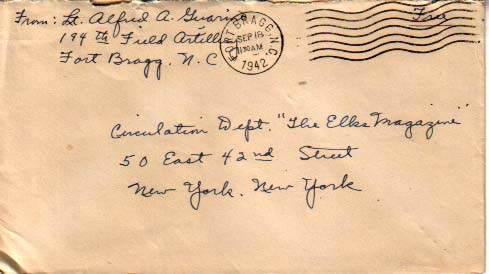 From: Lt. Alfred A.
194th Field Artillery
Fort Bragg. N.C
Free
FORT BRAGG. N.C.
SEP 18
11 30 AM
1942
Circulation Dept. "The Elks Magazine"
50 East 42nd Street
New York. New York